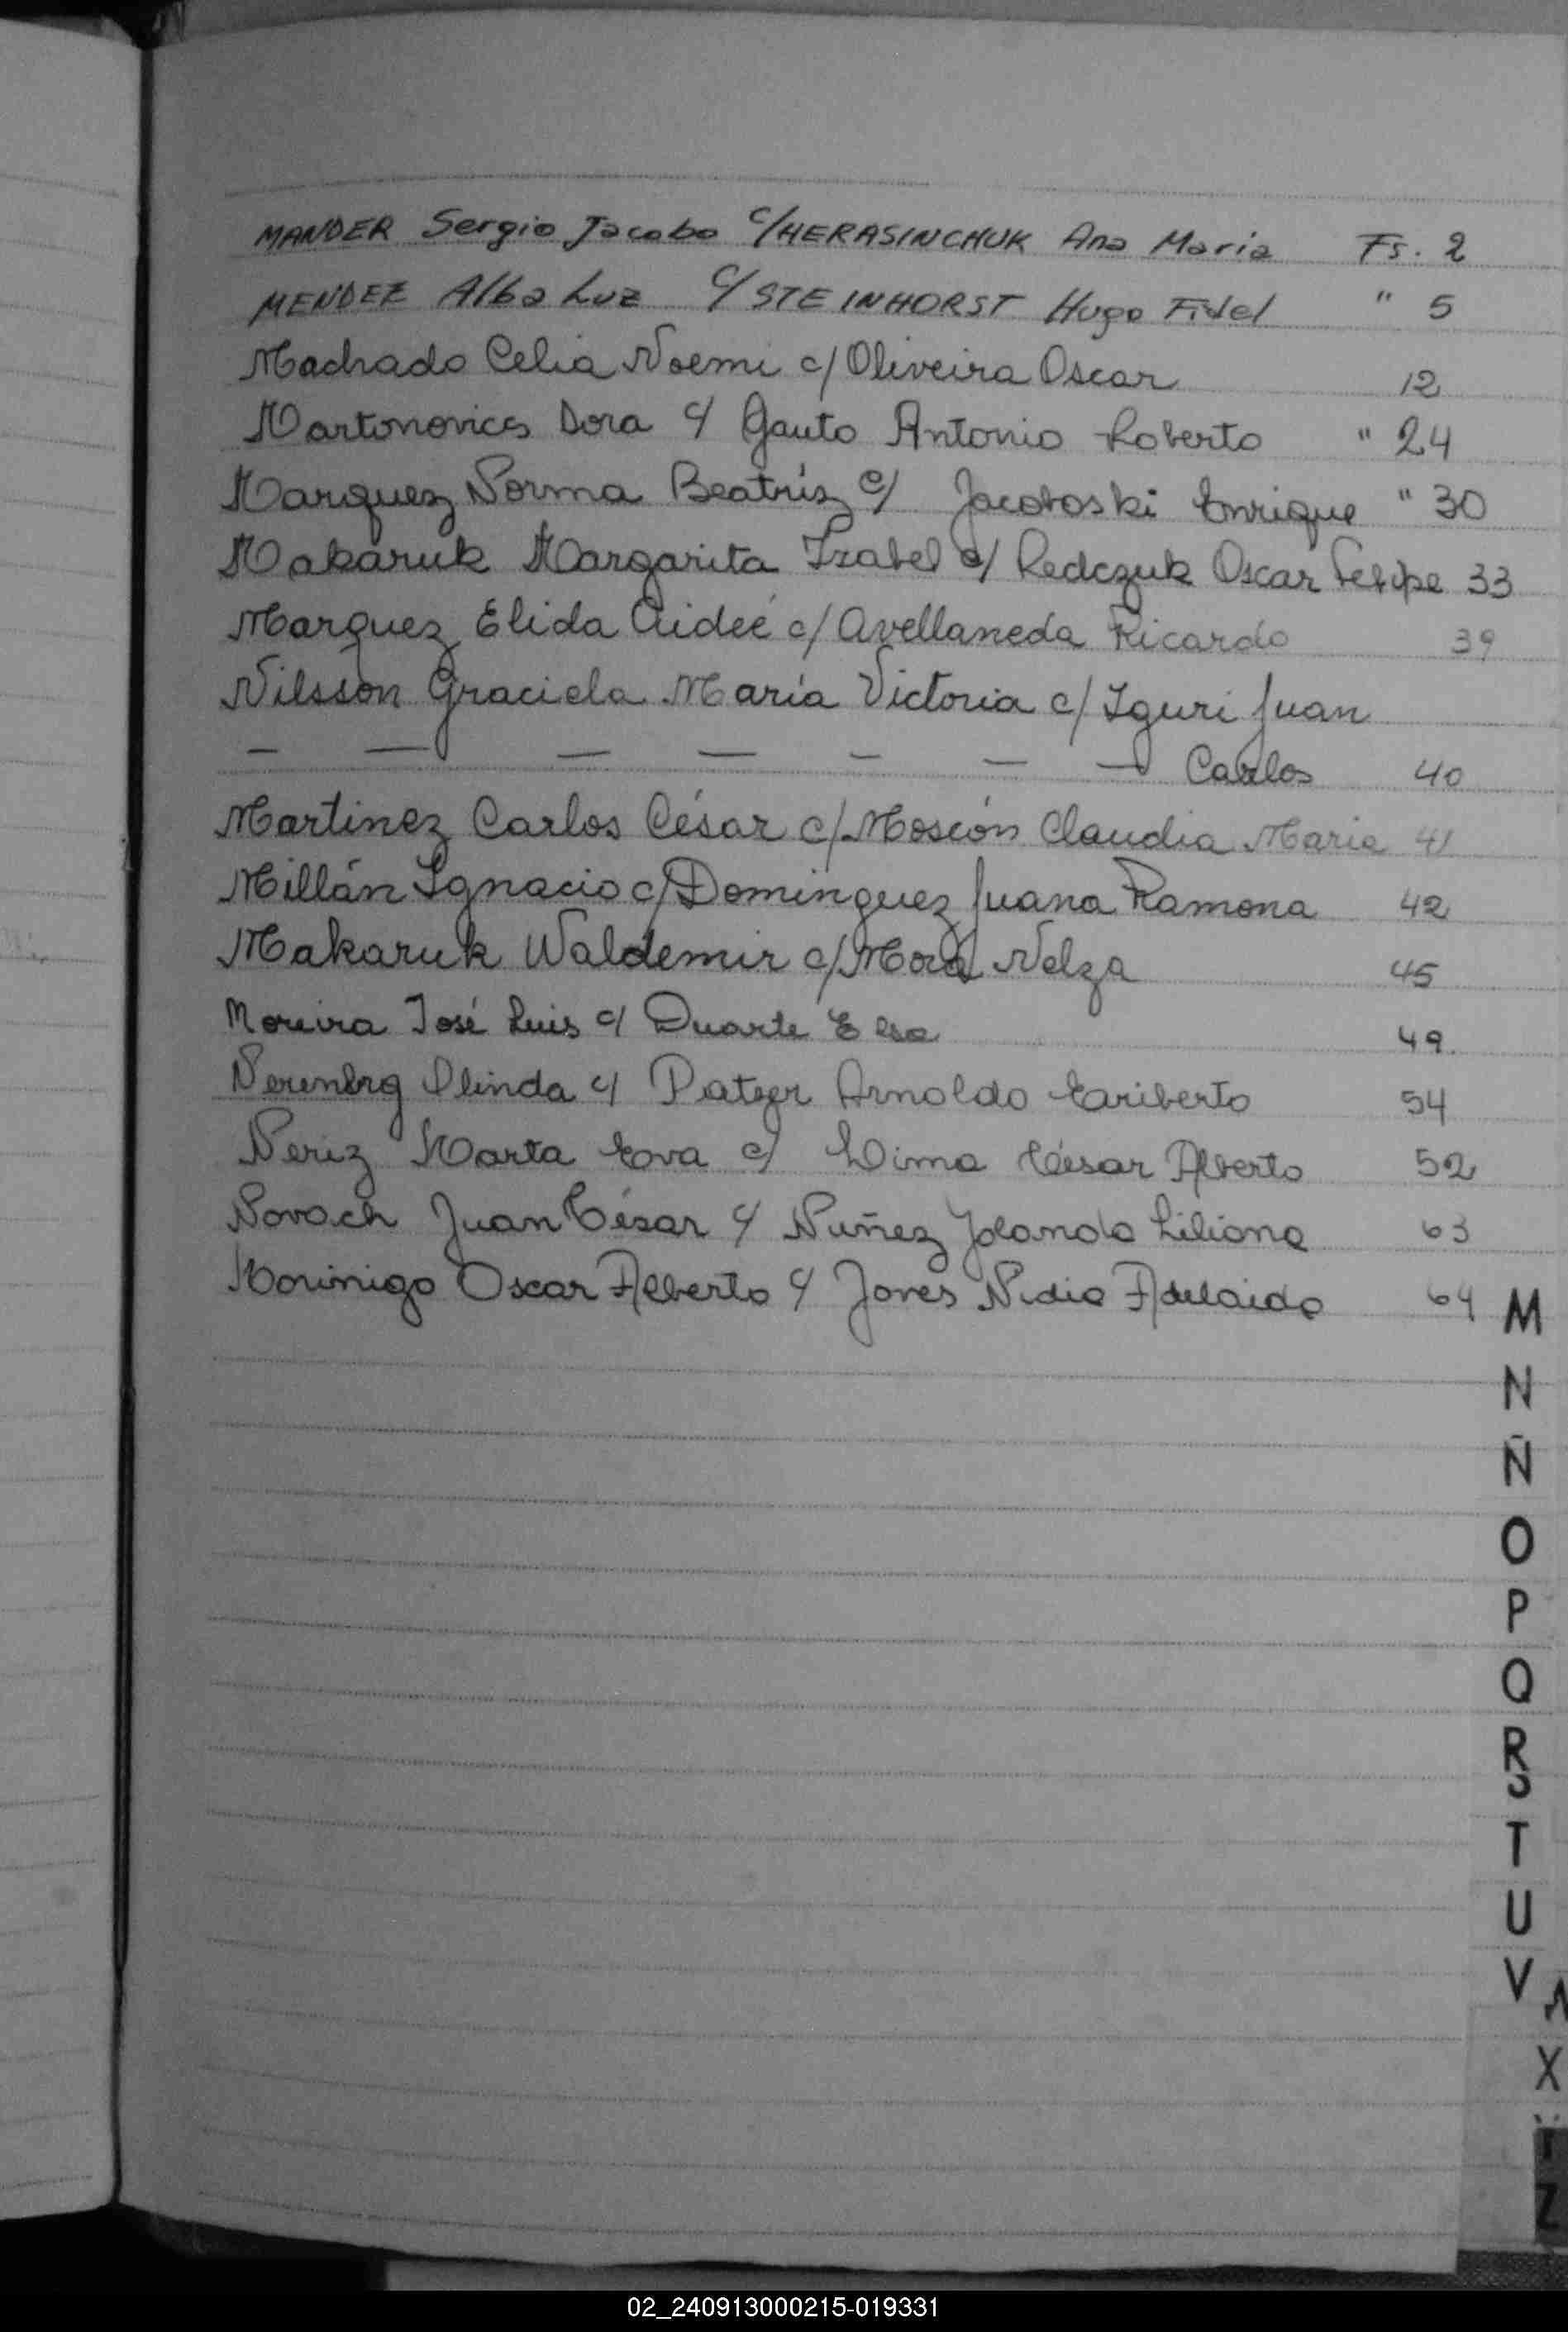 MANDER Sergio Jacobo c/HERASINCHUK Ana Maria Fs. 2
MENDEZ Alba Luz c/ STEINHORST Hugo Fidel " 5
Machado Celia Noemi c/ Oliveira Oscar 12
Martonovics Dora c/ Gauto Antonio Roberto " 24
Marquez Norma Beatríz c/ Jacoboski Enrique " 30
Makaruk Margarita Izabel c/ Redczuk Oscar Felipe 33
Marquez Elida Aideé c/ Avellaneda Ricardo 39
Nilsson Graciela María Victoria c/ Iguri Juan
— — — — — — — Carlos 40
Martinez Carlos César c/ Moscón Claudia Maria 41
Millán Ignacio c/ Dominguez Juana Ramona 42
Makaruk Waldemir c/ Mora Nelza 45
Moreira José Luis c/ Duarte Elsa 49
Olinda c/ Arnoldo Eariberto 54
Neriz Marta Eva c/ Lima César Alberto 52
Novach Juan César c/ Nuñez Yolanda Liliana 63
Morinigo Oscar Alberto c/ Jones Nidia Adelaida 64
M
N
Ñ
O
P
Q
R
S
T
U
V
X
Y
Z
02_240913000215-019331